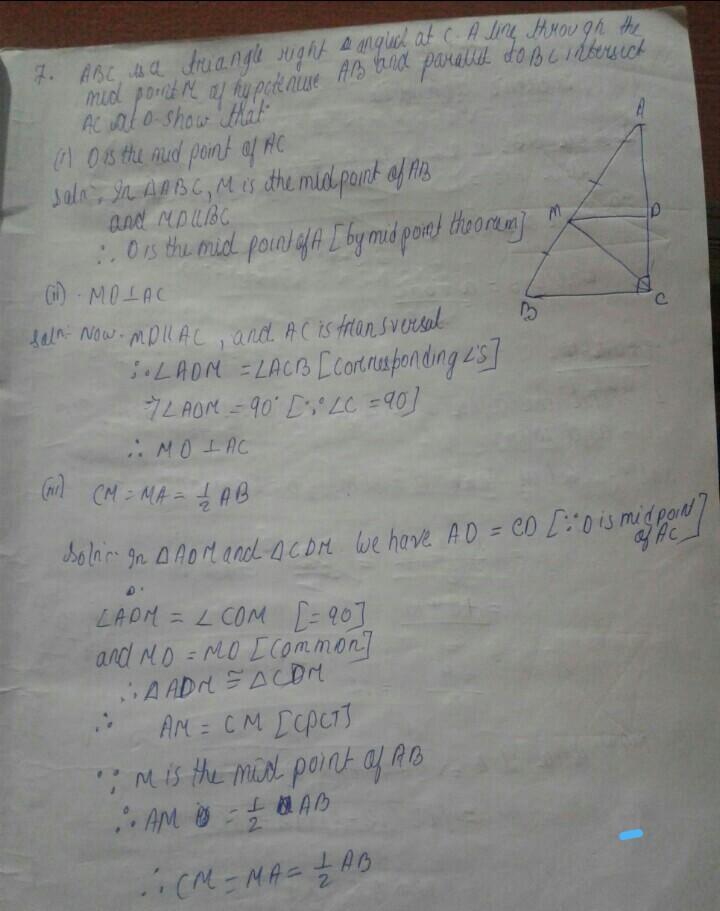 7. ABC is a triangle right angled at C. A line through the
mid point M of hypotenuse AB and parallel to BC intersect
AC at D show that
(i) D is the mid point of AC
Soln:- In ΔABC, M is the midpoint of AB
and MD||BC
∴ D is the mid point of A [by mid point theoram]
(ii) MD⊥AC
Soln:- Now - MD||AC, and AC is transversal
∴ ∠ADM = ∠ACB [corresponding ∠'S]
⇒ ∠ADM = 90° [∵ ∠C = 90]
∴ MD ⊥ AC
(iii) CM = MA = 1/2 AB
Soln:- In ΔADM and ΔCDM we have AD = CD [∵ D is mid point
of AC]
∠ADM = ∠CDM [= 90]
and MD = MD [common]
∴ ΔADM ≅ ΔCDM
∴ AM = CM [CPCT]
∵ M is the mid point of AB
∴ AM = 1/2 AB
∴ CM = MA = 1/2 AB
A
M
D
B
C